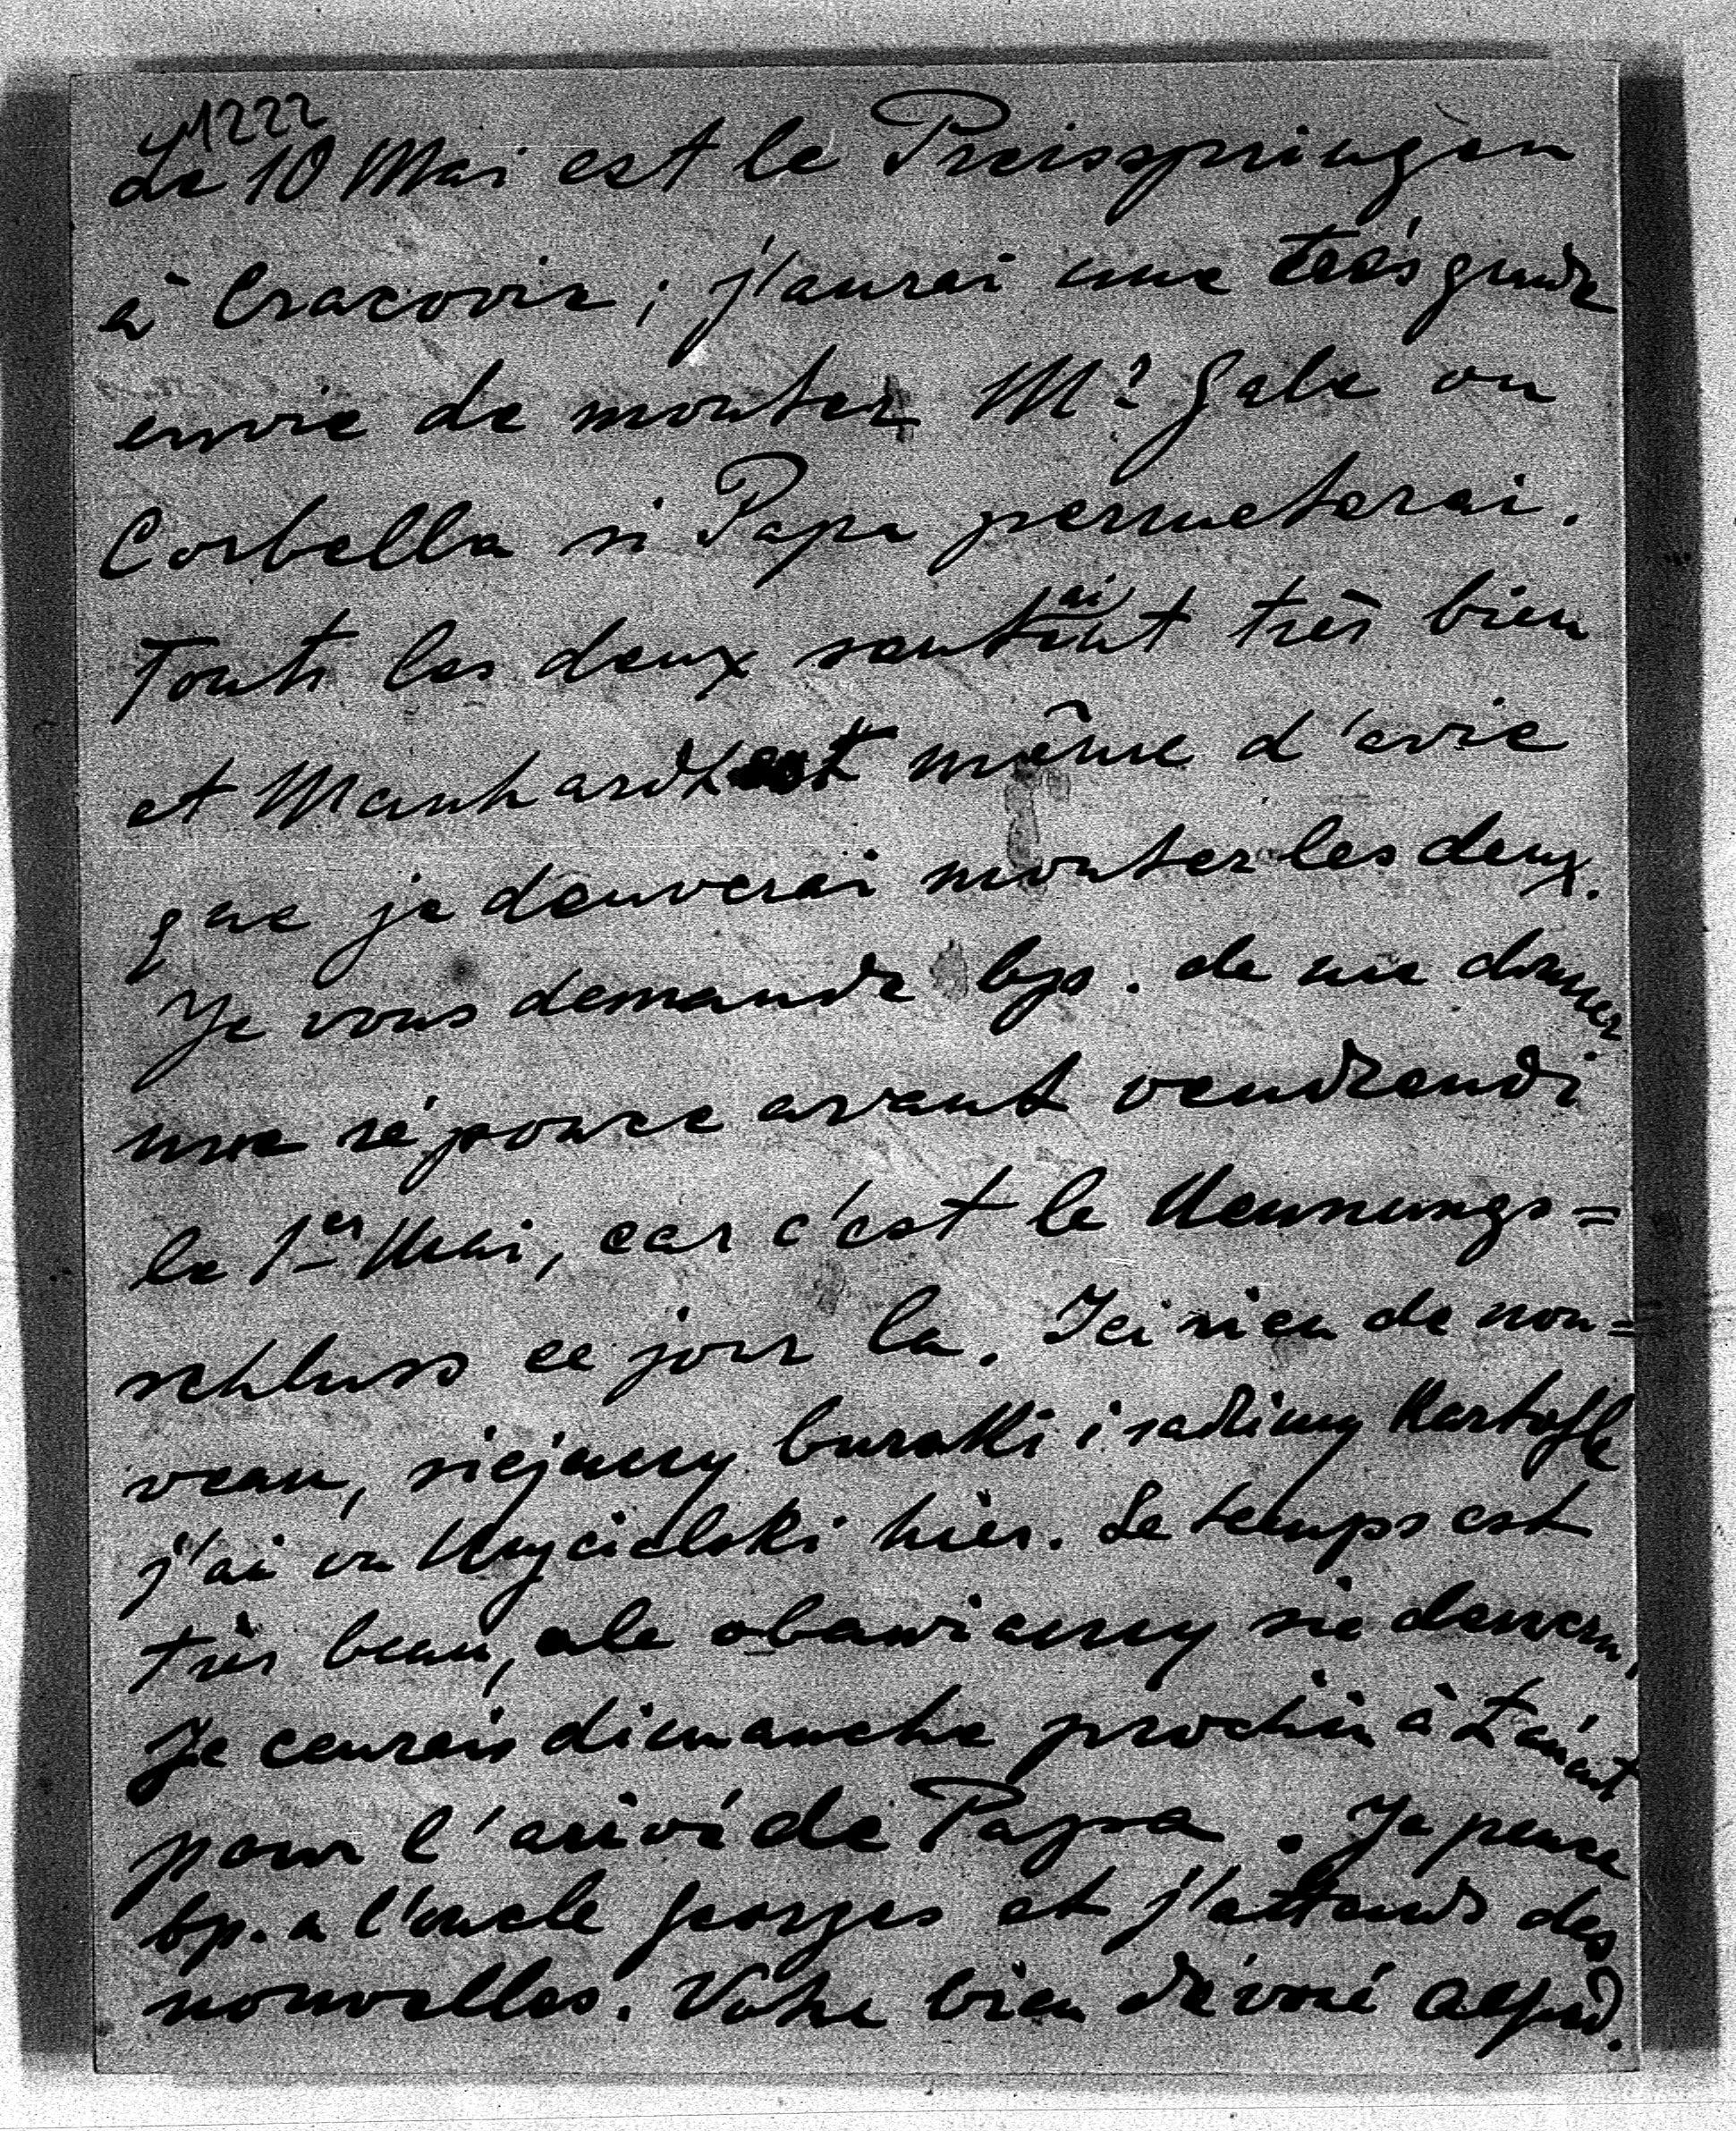 1222
Le 10 Mai est le Preisspringen
à Cracovie ; j'aurai une très grande
envie de monter Mr Gale ou
Corbella si Papa permeterai.
Touts les deux sautaint très bien
et Manhardt est même d'avie
que je deuverai monter les deux.
Je vous demande bp. de me donner
une réponce avant vendrendi
le 1er Mai, car c'est le Nennungs=
schluss ce jour la. Ici rien de nou=
veau, siejemy buraki i sadimy Kartofle
j'ai vu Mycielski hièr. Le temps est
très beau, ale obawiamy sie
Je cenrais dimanche prochin à Łańcut
pour l'arivé de Papa. Je pence
bp. a l'oncle Georges et j'attends des
nouvelles. Votre bien dévoué Alfred.